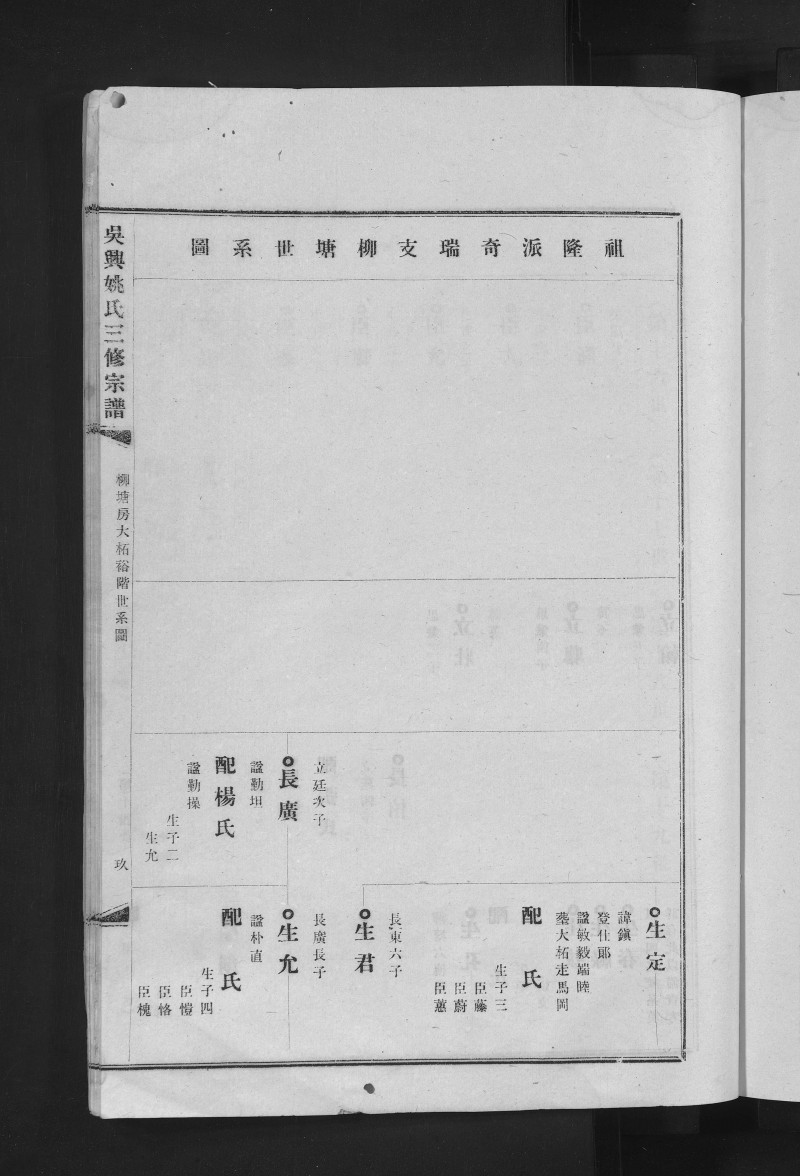 祖隆派奇瑞支柳塘世系圖
立廷次子
長廣
諡勤坦
配楊氏
諡勤操
生子二
生允
生定
諱鎭
登仕郎
諡敏毅端睦
塟大柘走馬岡
配　氏
生子三
臣藤
臣蔚
臣蕙
長東六子
生君
長廣長子
生允
諡朴直
配　氏
生子四
臣愷
臣恪
臣槐
吳興姚氏三修宗譜
柳塘房大柘裕階世系圖
玖